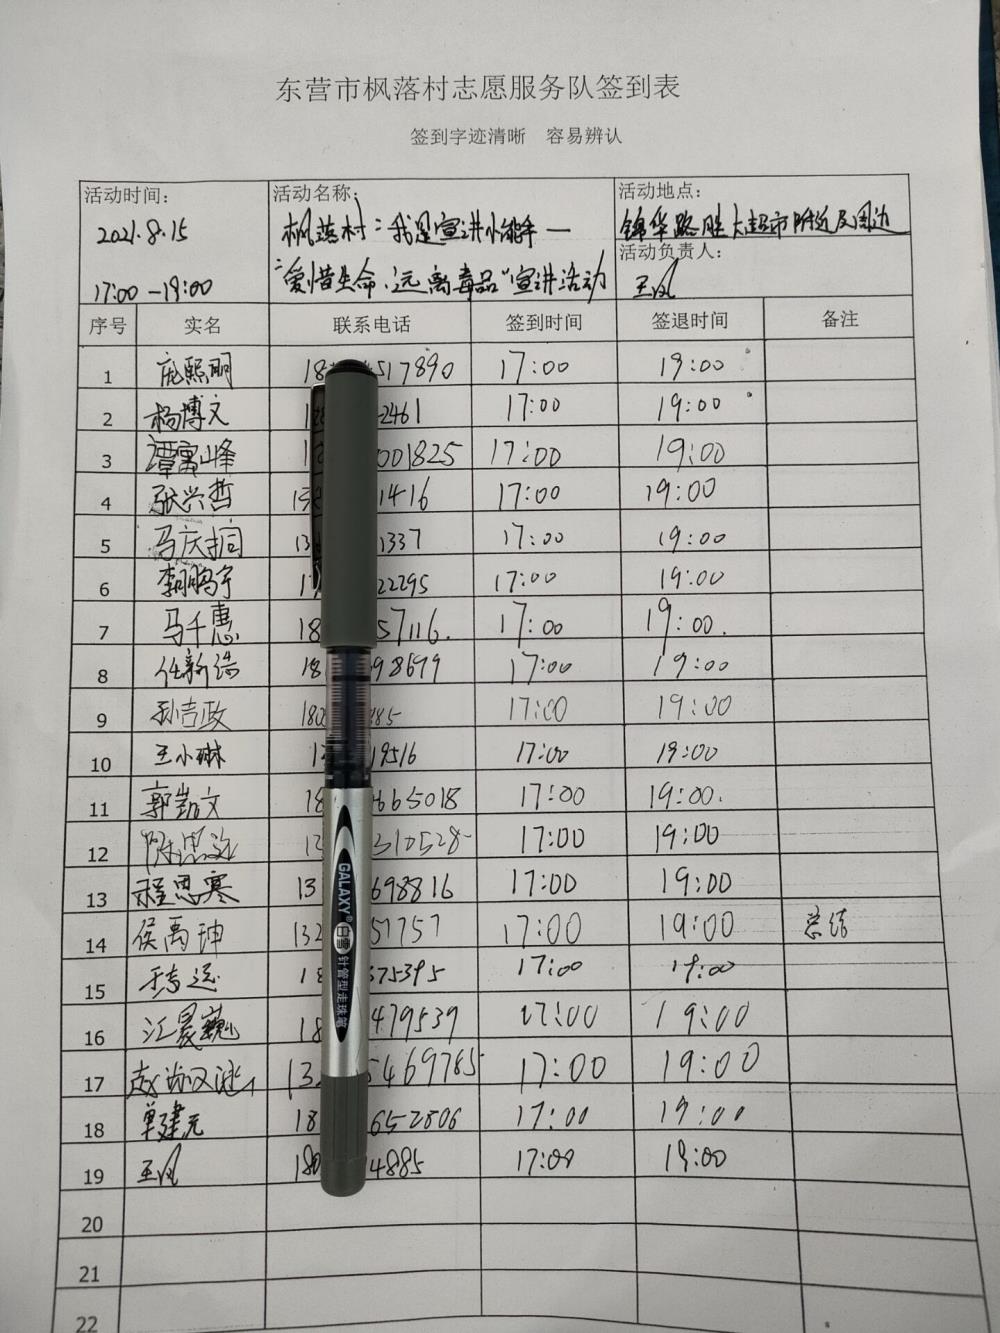 东营市枫落村志愿服务队签到表
签到字迹清晰 容易辨认
活动时间： 活动名称： 活动地点：
2021.8.15 枫落村：我是宣讲小能手— 锦华路胜大超市附近及周边
活动负责人：
17:00-19:00 "爱惜生命，远离毒品"宣讲活动 王风
序号 实名 联系电话 签到时间 签退时间 备注
1 庞熙明 18 517890 17:00 19:00
2 杨博文 2461 17:00 19:00
3 谭富山峰 001825 17:00 19:00
4 张兴哲 1416 17:00 19:00
5 马庆 13 1337 17:00 19:00
6 李鹏宇 22295 17:00 19:00
7 马千惠 18 57116. 17:00 19:00.
8 任新浩 18 98679 17:00 19:00
9 孙吉政 180 885 17:00 19:00
10 王小琳 19516 17:00 19:00
11 郭凯文 18 665018 17:00 19:00.
12 310528 17:00 19:00
13 程思寒 13 698816 17:00 19:00
14 侯禹珅 132 51757 17:00 19:00 总结
15 18 575395 17:00 19:00
16 江晨巍 18 479539 17:00 19:00
17 13 5469785 17:00 19:00
18 单建元 18 652806 17:00 19:00
19 王风 180 4885 17:00 19:00
20
21
22
GALAXY® 白雪 针管型走珠笔